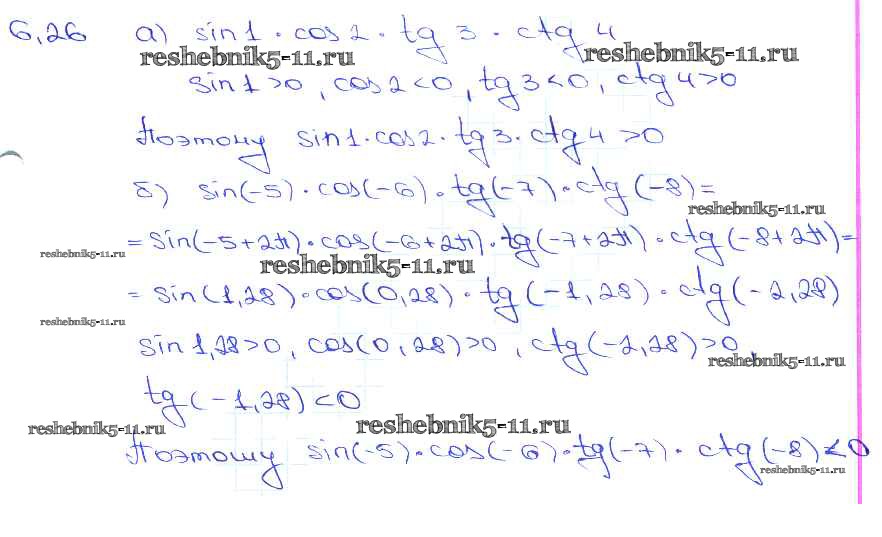 6,26 а) sin 1 · cos 2 · tg 3 · ctg 4
reshebnik5-11.ru reshebnik5-11.ru
sin 1 > 0, cos 2 < 0, tg 3 < 0, ctg 4 > 0
Поэтому sin 1 · cos 2 · tg 3 · ctg 4 > 0
б) sin(-5) · cos(-6) · tg(-7) · ctg(-8) =
reshebnik5-11.ru
= sin(-5+2π) · cos(-6+2π) · tg(-7+2π) · ctg(-8+2π) =
reshebnik5-11.ru reshebnik5-11.ru
= sin(1,28) · cos(0,28) · tg(-1,28) · ctg(-2,28)
reshebnik5-11.ru
sin 1,28 > 0, cos(0,28) > 0, ctg(-2,28) > 0,
reshebnik5-11.ru
tg(-1,28) < 0
reshebnik5-11.ru reshebnik5-11.ru
Поэтому sin(-5) · cos(-6) · tg(-7) · ctg(-8) < 0
reshebnik5-11.ru